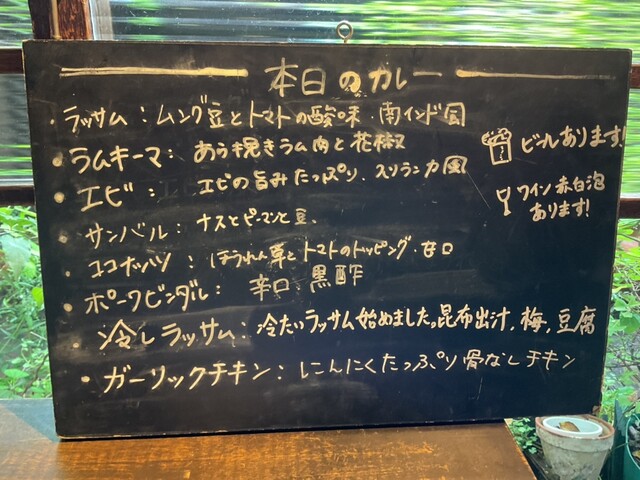 本日のカレー
・ラッサム：ムング豆とトマトの酸味．南インド風
・ラムキーマ：あら挽きラム肉と花椒
・エビ：エビの旨みたっぷり、スリランカ風
・サンバル：ナスとピーマンと豆、
・ココナッツ：ほうれん草とトマトのトッピング．甘口
・ポークビンダル：辛口 黒酢
・冷しラッサム：冷たいラッサム始めました。昆布出汁，梅，豆腐
・ガーリックチキン：にんにくたっぷり骨なしチキン
ビールあります！
ワイン赤白泡
あります！